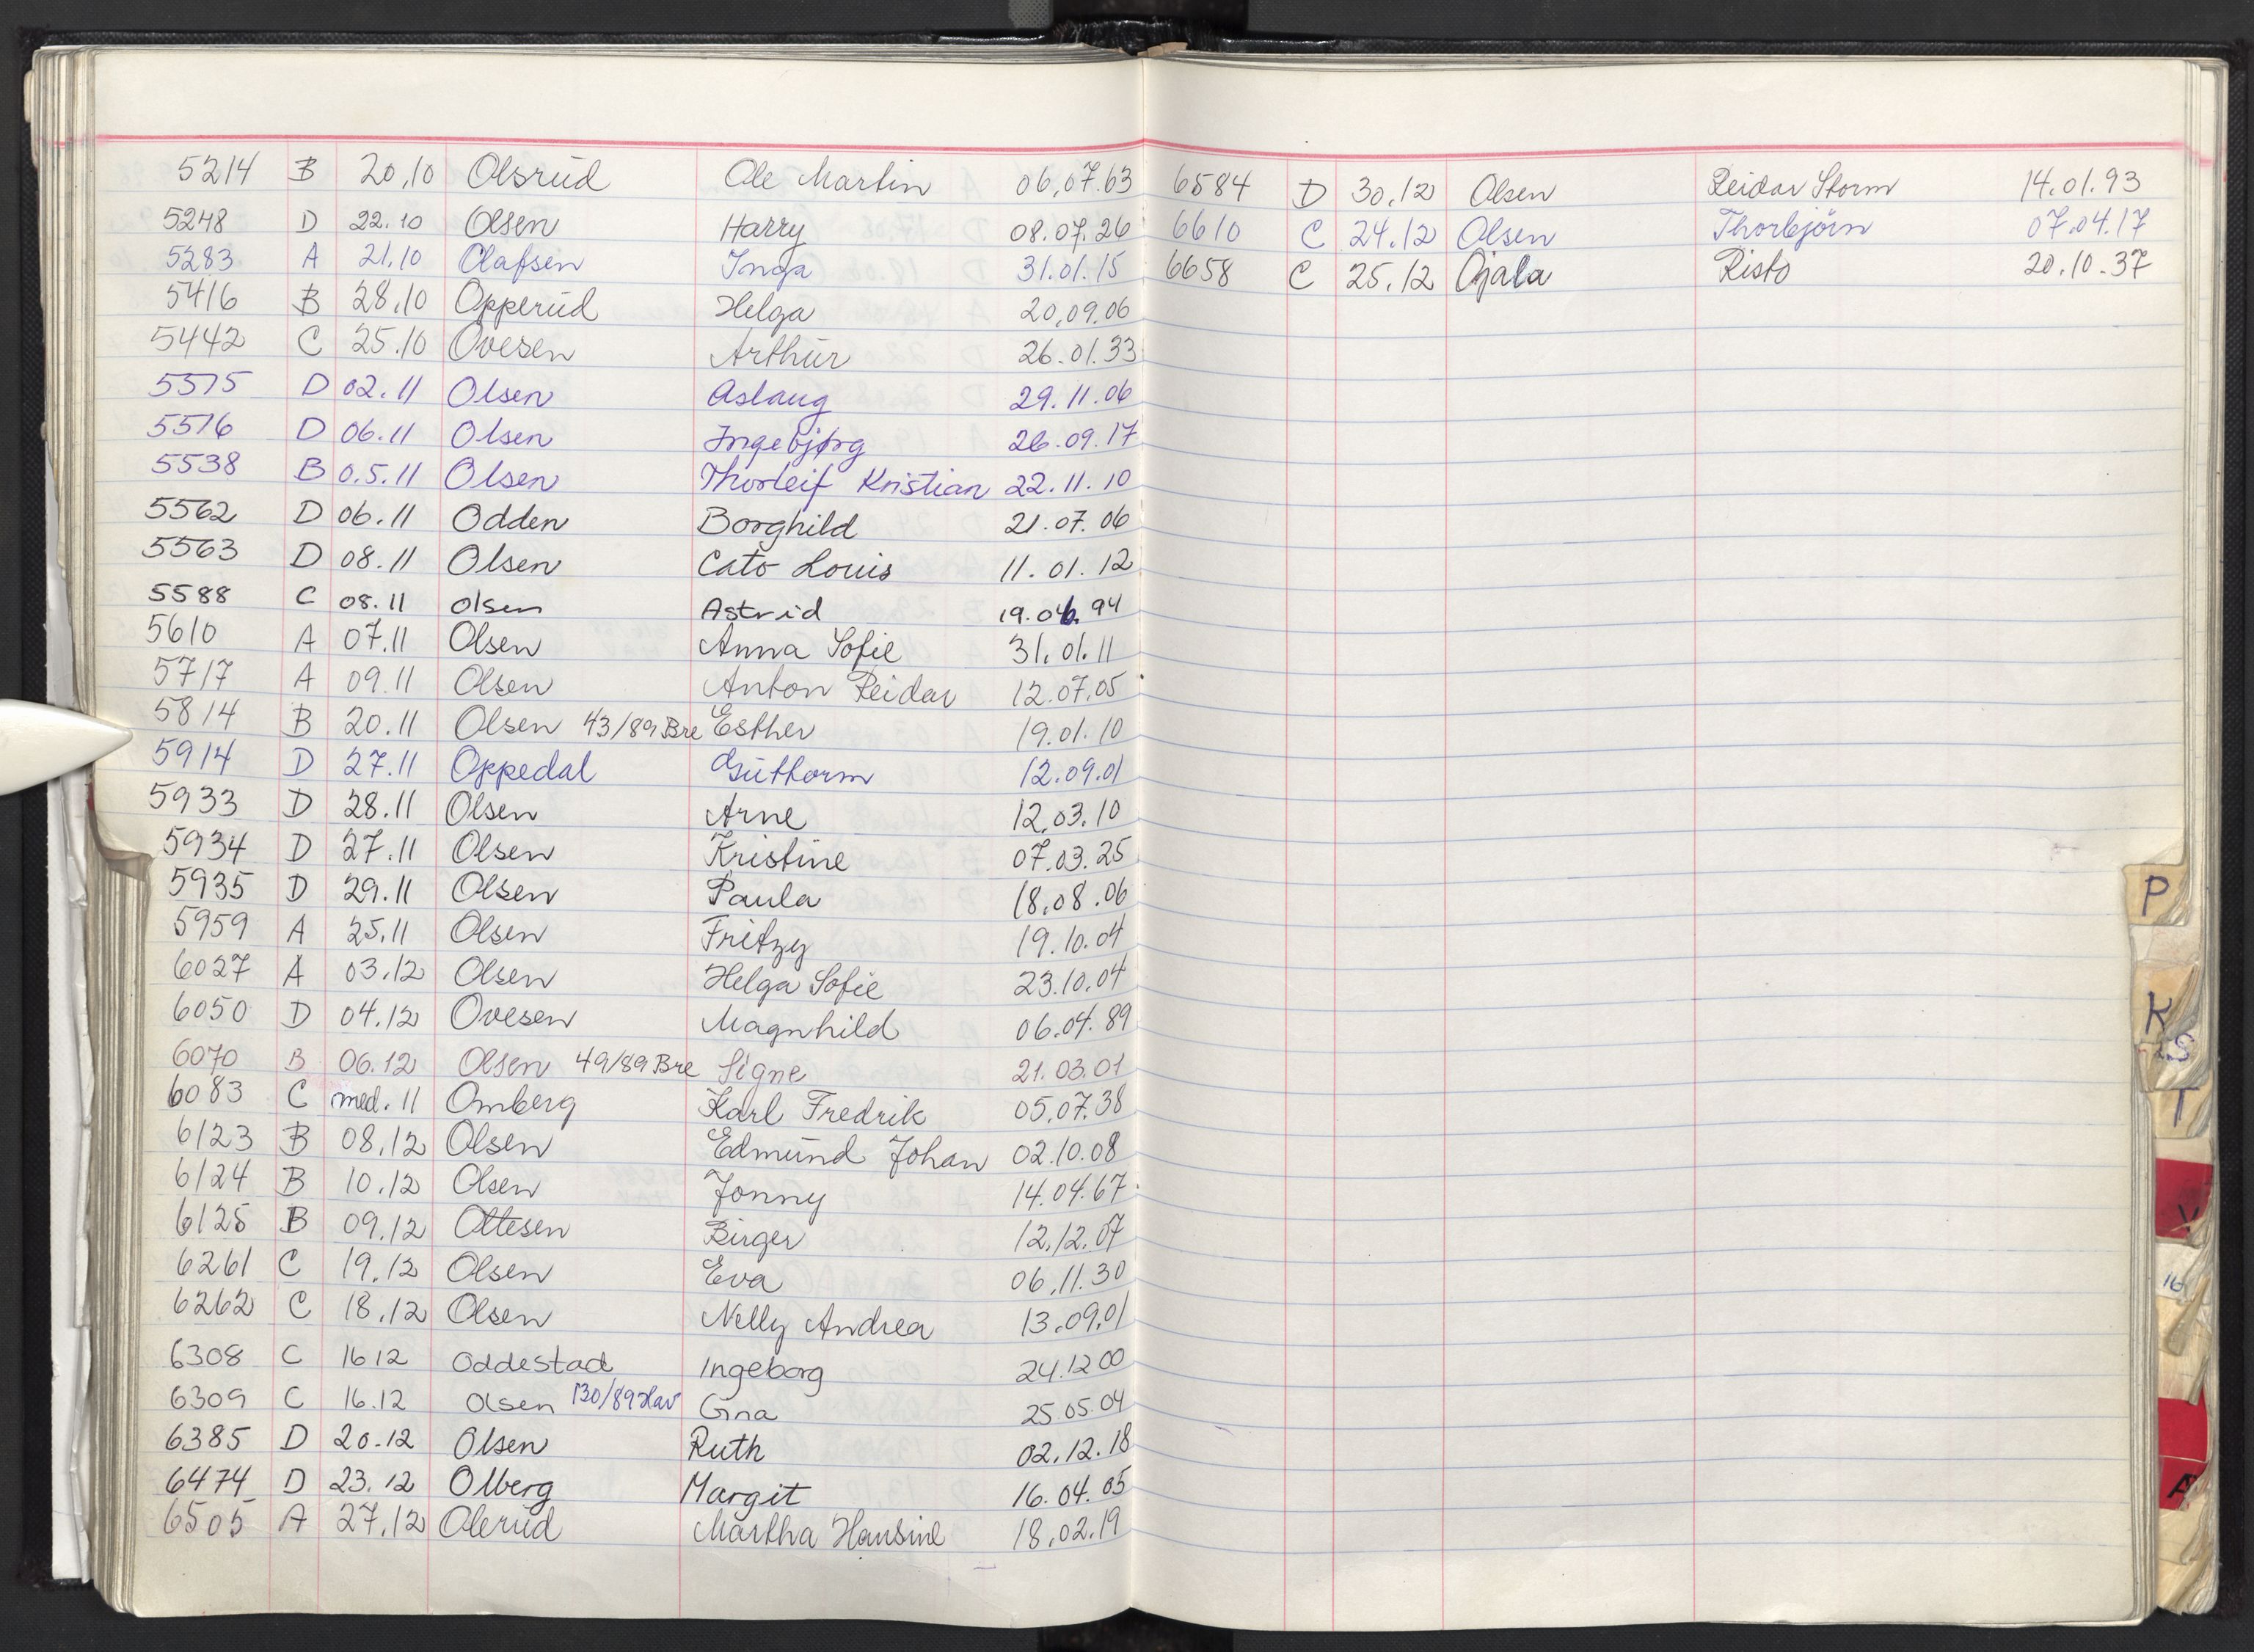 5214 B 20.10 Olsrud Ole Martin 06.07.63
5248 D 22.10 Olsen Harry 08.07.26
5283 A 21.10 Olafsen Inga 31.01.15
5416 B 28.10 Opperud Helga 20.09.06
5442 C 25.10 Ovesen Arthur 26.01.33
5515 D 02.11 Olsen Aslaug 29.11.06
5516 D 06.11 Olsen Ingebjørg 26.09.17
5538 B 0.5.11 Olsen Thorleif Kristian 22.11.10
5562 D 06.11 Odden Borghild 21.07.06
5563 D 08.11 Olsen Cato Louis 11.01.12
5588 C 08.11 Olsen Astrid 19.06.94
5610 A 07.11 Olsen Anna Sofie 31.01.11
5717 A 09.11 Olsen Anton Reidar 12.07.05
5814 B 20.11 Olsen 43/89 Bre Esther 19.01.10
5914 D 27.11 Oppedal Guthorm 12.09.01
5933 D 28.11 Olsen Arne 12.03.10
5934 D 27.11 Olsen Kristine 07.03.25
5935 D 29.11 Olsen Paula 18.08.06
5959 A 25.11 Olsen Fritzy 19.10.04
6027 A 03.12 Olsen Helga Sofie 23.10.04
6050 D 04.12 Ovesen Magnhild 06.04.89
6070 B 06.12 Olsen 49/89 Bre Signe 21.03.01
6083 C med. 11 Omberg Karl Fredrik 05.07.38
6123 B 08.12 Olsen Edmund Johan 02.10.08
6124 B 10.12 Olsen Jonny 14.04.67
6125 B 09.12 Ottesen Birger 12.12.07
6261 C 19.12 Olsen Eva 06.11.30
6262 C 18.12 Olsen Nelly Andrea 13.09.01
6308 C 16 12 Oddestad Ingeborg 24.12 00
6309 C 16.12 Olsen 130/89 Hav Gna 25.05.04
6385 D 20.12 Olsen Ruth 02.12.18
6474 D 23.12 Olberg Margit 16.04.05
6505 A 27.12 Olerud Martha Hansine 18.02.19
6584 D 30.12 Olsen Reidar Storm 14.01.93
6610 C 24.12 Olsen Thorbjörn 07.04.17
6658 C 25.12 Ojala Risto 20.10.37
P
K
S
T
V
16